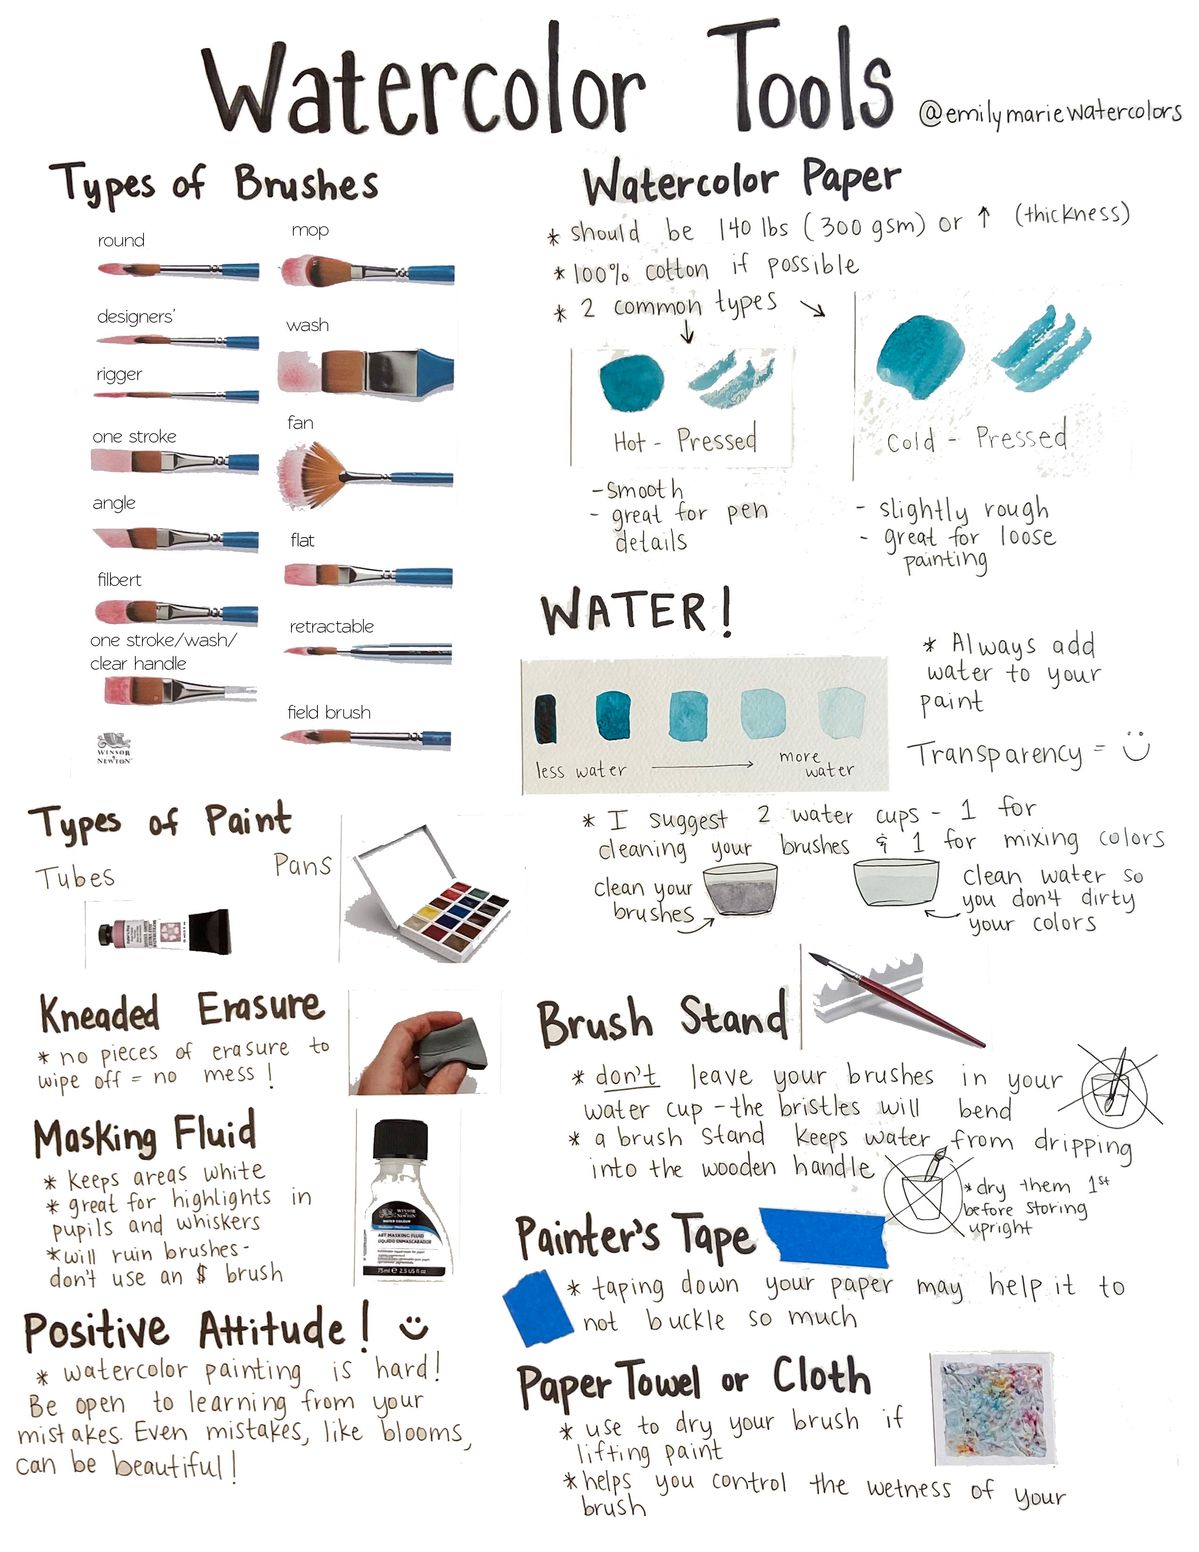 Watercolor Tools
@emilymariewatercolors
Types of Brushes
round
designers'
rigger
one stroke
angle
filbert
one stroke/wash/
clear handle
WINSOR
& NEWTON
mop
wash
fan
flat
retractable
field brush
Types of Paint
Tubes
Pans
Kneaded Erasure
* no pieces of erasure to
wipe off = no mess!
Masking Fluid
* keeps areas white
* great for highlights in
pupils and whiskers
* will ruin brushes -
don't use an $ brush
WINSOR
& NEWTON
WATER COLOUR
ART MASKING FLUID
LÍQUIDO ENMASCARADOR
75ml e 2.5 US fl oz
Positive Attitude! :)
* watercolor painting is hard!
Be open to learning from your
mistakes. Even mistakes, like blooms,
can be beautiful!
Watercolor Paper
* should be 140 lbs (300 gsm) or ↑ (thickness)
* 100% cotton if possible
* 2 common types
Hot - Pressed
- smooth
- great for pen
details
Cold - Pressed
- slightly rough
- great for loose
painting
WATER!
less water
more
water
* Always add
water to your
paint
Transparency = :)
* I suggest 2 water cups - 1 for
cleaning your brushes & 1 for mixing colors
clean your
brushes
clean water so
you don't dirty
your colors
Brush Stand
* don't leave your brushes in your
water cup - the bristles will bend
* a brush stand keeps water from dripping
into the wooden handle
* dry them 1st
before storing
upright
Painter's Tape
* taping down your paper may help it to
not buckle so much
Paper Towel or Cloth
* use to dry your brush if
lifting paint
* helps you control the wetness of your
brush